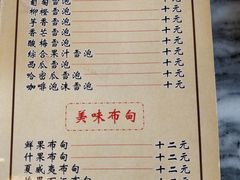 葡萄雪泡 十元
柳橙雪泡 十元
芋香雪泡 十元
香芒雪泡 十元
酸梅雪泡 十元
综合果汁雪泡 十元
西瓜雪泡 十元
哈密瓜雪泡 十元
咖啡泡沫雪泡 十元
美味布甸
鲜果布甸 十二元
什果布甸 十二元
夏威夷布甸 十二元